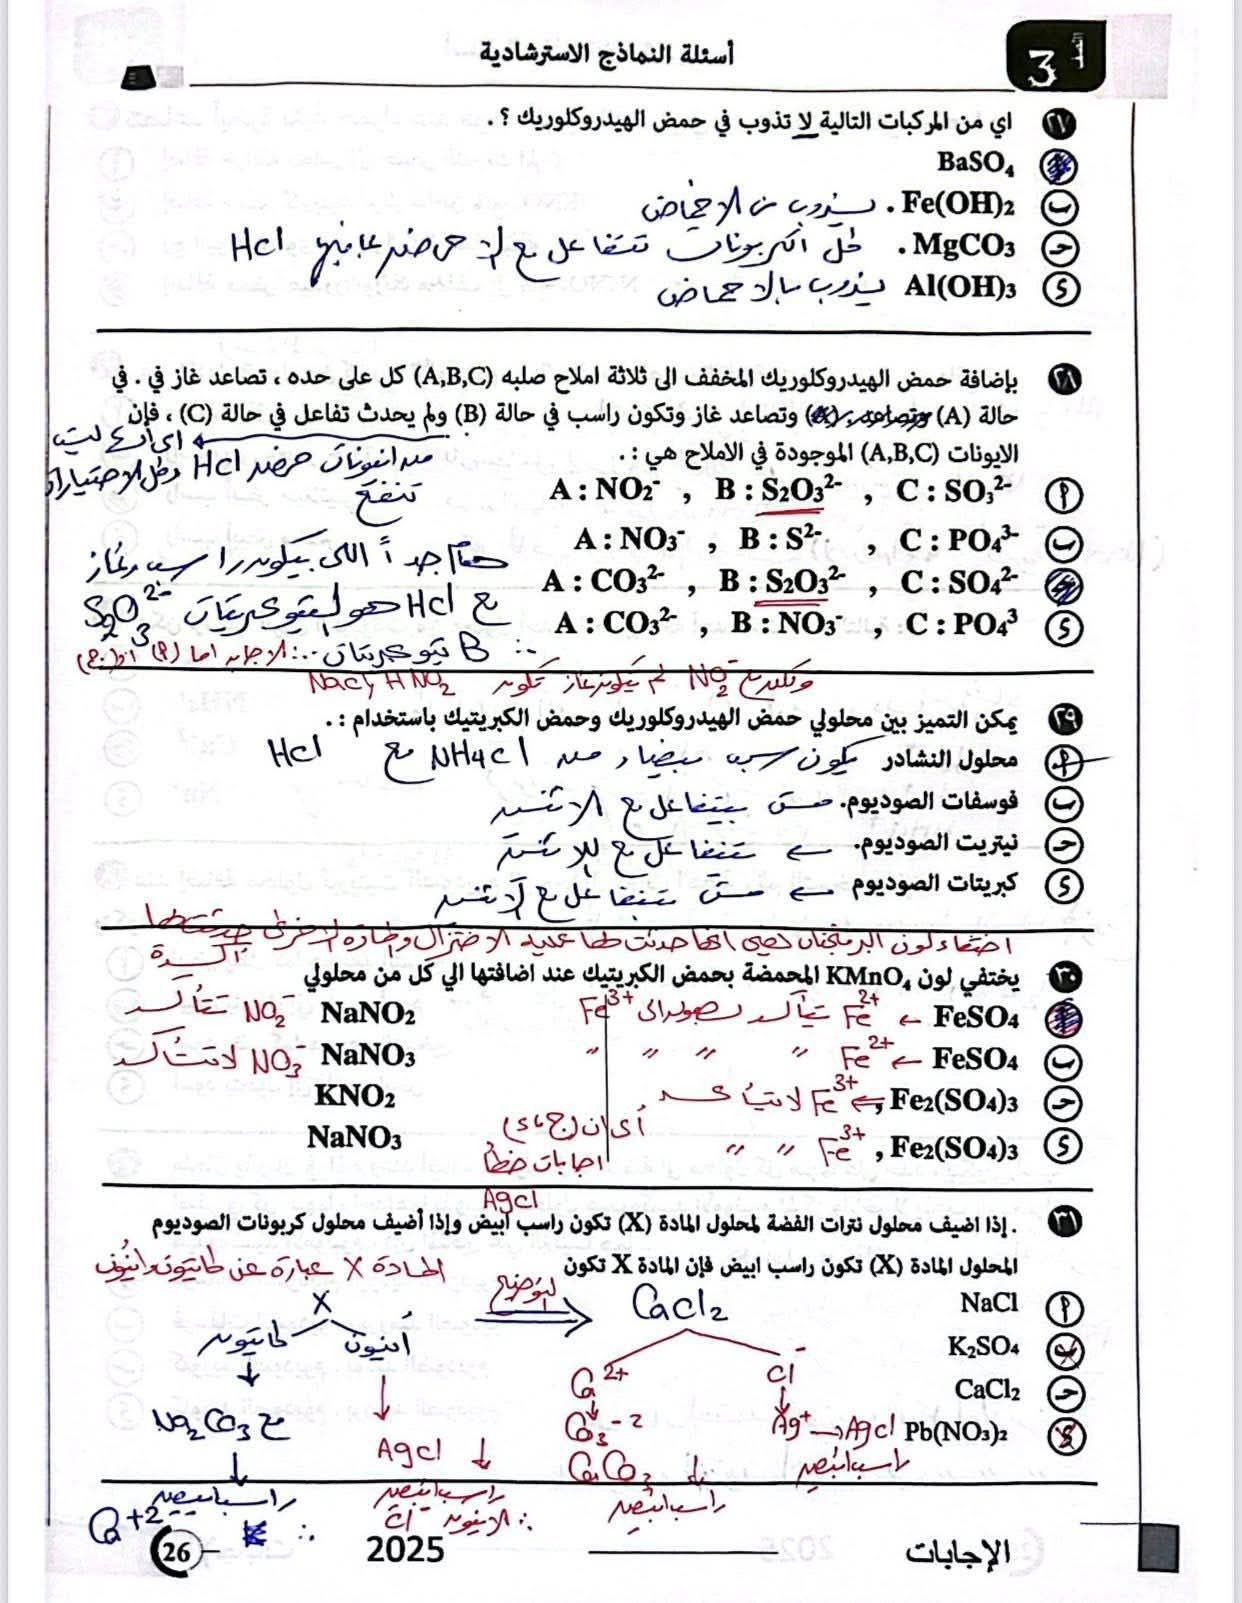 أسئلة النماذج الاسترشادية
٢٧ اي من المركبات التالية لا تذوب في حمض الهيدروكلوريك ؟ .
BaSO₄
ب Fe(OH)₂ . يذوب من الاحماض
ج MgCO₃ . كل الكربونات تتفاعل مع HCl
د Al(OH)₃ يذوب بالاحماض
٢٨ بإضافة حمض الهيدروكلوريك المخفف الى ثلاثة املاح صلبه (A,B,C) كل على حده ، تصاعد غاز في . في
حالة (A) وتصاعد غاز وتكون راسب في حالة (B) ولم يحدث تفاعل في حالة (C) ، فإن
الايونات (A,B,C) الموجودة في الاملاح هي :.
من انيونات حمض HCl وكل الاختيارات
تنفع
أ A : NO₂⁻ , B : S₂O₃²⁻ , C : SO₃²⁻
ب A : NO₃⁻ , B : S²⁻ , C : PO₄³⁻
A : CO₃²⁻ , B : S₂O₃²⁻ , C : SO₄²⁻
د A : CO₃²⁻ , B : NO₃⁻ , C : PO₄³
هام جداً اللى بيكون راسب وغاز
مع HCl هو ثيوكبريتات S₂O₃²⁻
∴ B ثيوكبريتات ∴ الاجابه اما (أ) او (ج)
ولكن مع NO₂⁻ لم يكون غاز تكون NaCl, HNO₂
٢٩ يمكن التميز بين محلولي حمض الهيدروكلوريك وحمض الكبريتيك باستخدام :.
أ محلول النشادر يكون سحب بيضاء من NH₄Cl مع HCl
ب فوسفات الصوديوم. مش بيتفاعل مع الاتنين
ج نيتريت الصوديوم. ← تتفاعل مع الاتنين
د كبريتات الصوديوم ← مش بتتفاعل مع الاتنين
اختفاء لون البرمنجنات يعني انها حدثت لها عملية الاختزال والمادة الاخرى حدثت لها
اكسدة
٣٠ يختفي لون KMnO₄ المحمضة بحمض الكبريتيك عند اضافتها الي كل من محلولي
FeSO₄ ← Fe²⁺ يتأكسد الى Fe³⁺ NaNO₂ NO₂⁻ تتأكسد
ب FeSO₄ ← Fe²⁺ " " " " NaNO₃ NO₃⁻ لا تتأكسد
ج Fe₂(SO₄)₃ , ← Fe³⁺ لا يتأكسد KNO₂
د Fe₂(SO₄)₃ , Fe³⁺ " " NaNO₃
أي ان (ج، د)
اجابات خطأ
AgCl
٣١ . إذا اضيف محلول نترات الفضة لمحلول المادة (X) تكون راسب أبيض وإذا أضيف محلول كربونات الصوديوم
المحلول المادة (X) تكون راسب ابيض فإن المادة X تكون
المادة X عبارة عن كاتيون وانيون
أ NaCl
ب K₂SO₄
ج CaCl₂
د Pb(NO₃)₂
X
أنيون كاتيون
لتوضيح
CaCl₂
Ca²⁺ Cl⁻
CO₃⁻² Ag⁺ → AgCl
CaCO₃ ↓ راسب ابيض
راسب ابيض
مع Na₂CO₃
راسب ابيض
AgCl ↓
راسب ابيض
∴ الانيون Cl⁻
∴ Ca⁺²
الإجابات
2025
26